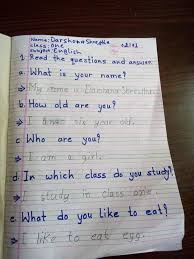 Name: Darshana Shrestha
Class: One
Subject: English
1. Read the questions and answer.
a. What is your name?
⇒ My name is Darshana Shrestha.
b. How old are you?
⇒ I am six year old.
c. Who are you?
⇒ I am a girl.
d. In which class do you study?
⇒ I study in class one.
e. What do you like to eat?
⇒ I like to eat egg.